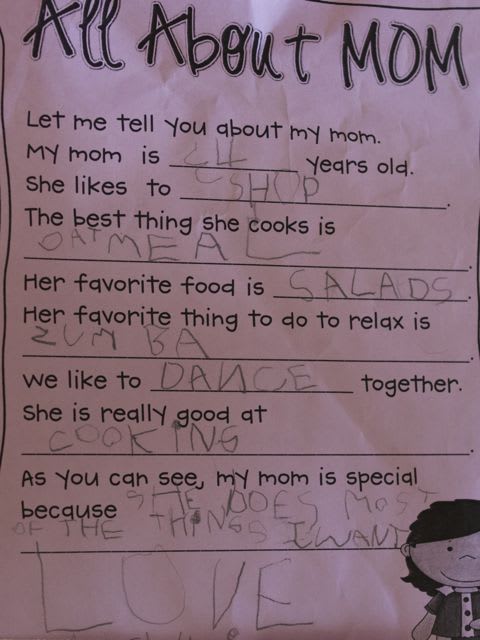 All About MOM
Let me tell you about my mom.
My mom is years old.
She likes to SHOP.
The best thing she cooks is
OATMEAL.
Her favorite food is SALADS.
Her favorite thing to do to relax is
ZUMBA.
We like to DANCE together.
She is really good at
COOKING.
As you can see, my mom is special
because SHE DOES MOST
OF THE THINGS I WANT
LOVE